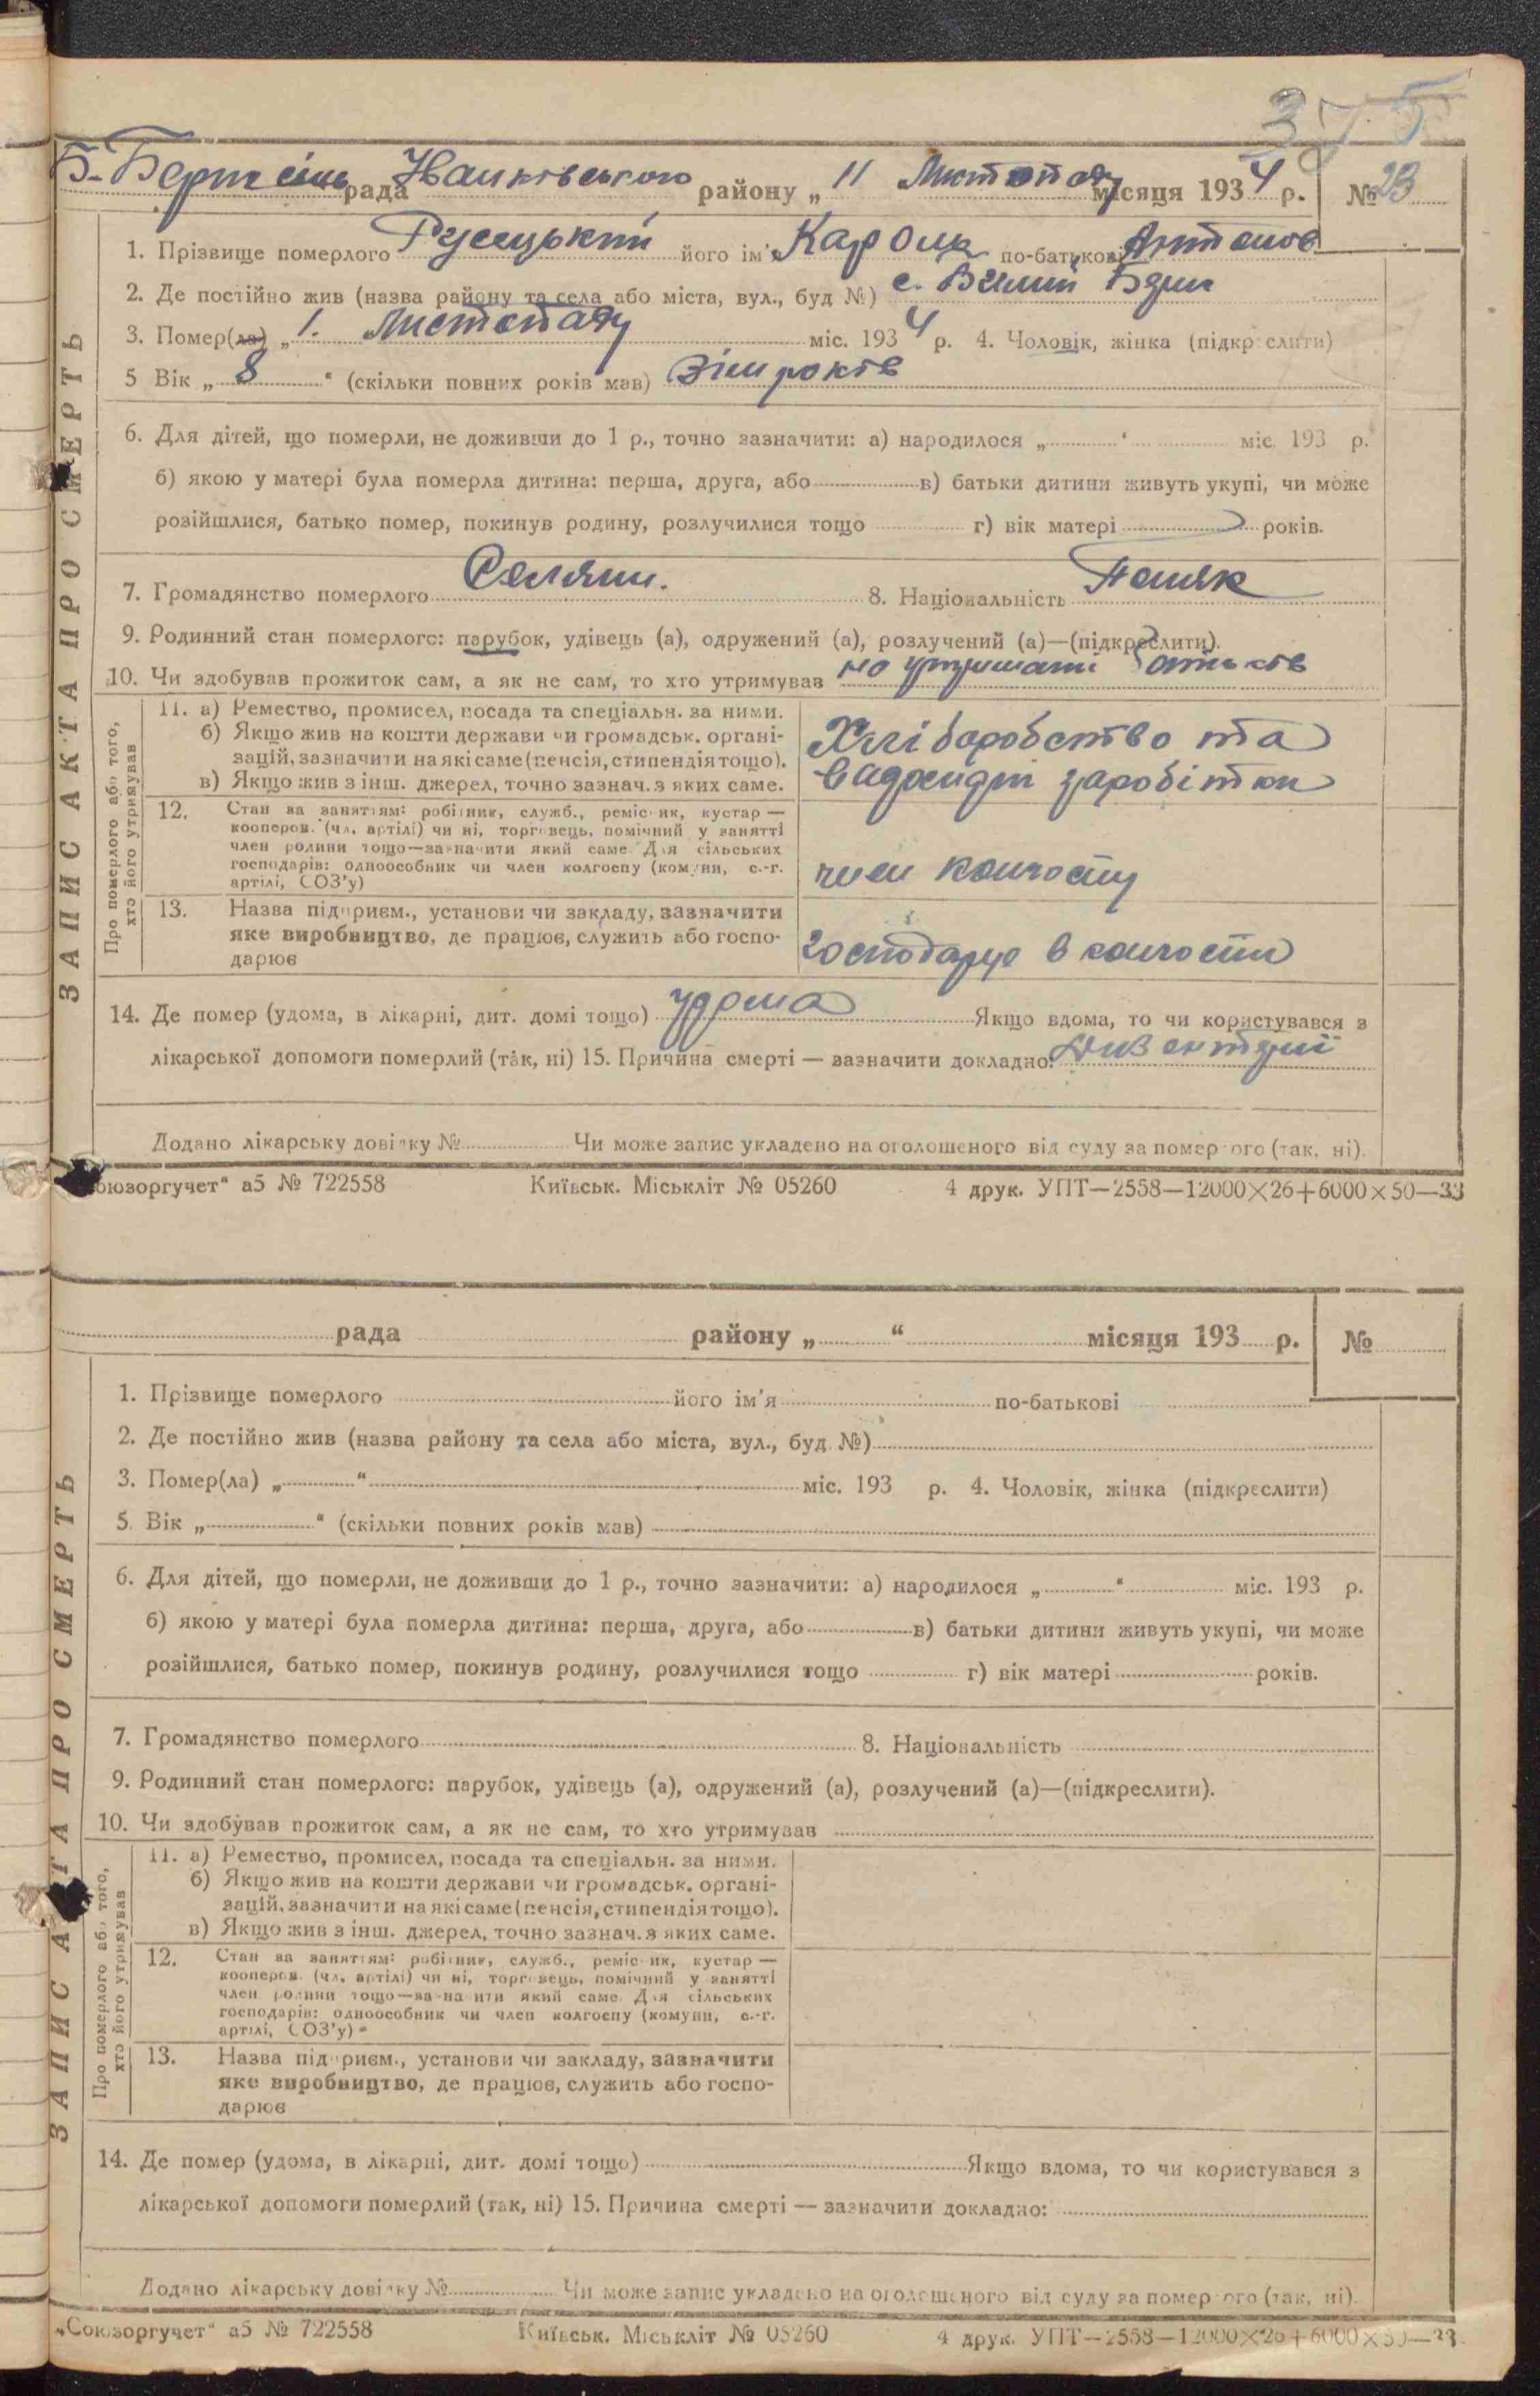 375
Б-Берт сіль рада району „ 11 Листопаду місяця 1934 р. № 23
1. Прізвище померлого його ім'я Кароль по-батькові Антонов
2. Де постійно жив (назва району та села або міста, вул., буд №) с.
3. Помер(ла) „ 1. Листопаду міс. 1934 р. 4. Чоловік, жінка (підкреслити)
5 Вік „ 8 “ (скільки повних років мав) років
6. Для дітей, що померли, не доживши до 1 р., точно зазначити: а) народилося „ “ міс. 193 р.
б) якою у матері була померла дитина: перша, друга, або в) батьки дитини живуть укупі, чи може
розійшлися, батько помер, покинув родину, розлучилися тощо г) вік матері років.
7. Громадянство померлого Селянин. 8. Національність Поляк
9. Родинний стан померлого: парубок, удівець (а), одружений (а), розлучений (а)—(підкреслити).
10. Чи здобував прожиток сам, а як не сам, то хто утримував на утриманні батьків
ЗАПИС АКТА ПРО СМЕРТЬ
Про померлого або того,
хто його утримував
11. а) Ремество, промисел, посада та спеціальн. за ними.
б) Якщо жив на кошти держави чи громадськ. органі-
зацій, зазначити на які саме (пенсія, стипендія тощо).
в) Якщо жив з інш. джерел, точно зазнач. з яких саме.
Хліборобство та
заробітки
12. Стан за заняттям: робітник, служб., реміс ик, кустар —
кооперов. (чл. артілі) чи ні, торговець, помічний у занятті
член родини тощо—зазначити який саме. Для сільських
господарів: одноособник чи член колгоспу (комуни, с.-г.
артілі, СОЗ'у)
член колгоспу
13. Назва підприєм., установи чи закладу, зазначити
яке виробництво, де працює, служить або госпо-
дарює
господарує в колгоспи
14. Де помер (удома, в лікарні, дит. домі тощо) удома Якщо вдома, то чи користувався з
лікарської допомоги померлий (так, ні) 15. Причина смерті — зазначити докладно:
Додано лікарську довідку № Чи може запис укладено на оголошеного від суду за померлого (так, ні).
„Союзоргучет“ а5 № 722558 Київськ. Міськліт № 05260 4 друк. УПТ—2558—12000×26+6000×50—33
рада району „ “ місяця 193 р. №
1. Прізвище померлого його ім'я по-батькові
2. Де постійно жив (назва району та села або міста, вул., буд №)
3. Помер(ла) „ “ міс. 193 р. 4. Чоловік, жінка (підкреслити)
5. Вік „ “ (скільки повних років мав)
6. Для дітей, що померли, не доживши до 1 р., точно зазначити: а) народилося „ “ міс. 193 р.
б) якою у матері була померла дитина: перша, друга, або в) батьки дитини живуть укупі, чи може
розійшлися, батько помер, покинув родину, розлучилися тощо г) вік матері років.
7. Громадянство померлого 8. Національність
9. Родинний стан померлого: парубок, удівець (а), одружений (а), розлучений (а)—(підкреслити).
10. Чи здобував прожиток сам, а як не сам, то хто утримував
ЗАПИС АКТА ПРО СМЕРТЬ
Про померлого або того,
хто його утримував
11. а) Ремество, промисел, посада та спеціальн. за ними.
б) Якщо жив на кошти держави чи громадськ. органі-
зацій, зазначити на які саме (пенсія, стипендія тощо).
в) Якщо жив з інш. джерел, точно зазнач. з яких саме.
12. Стан за заняттям: робітник, служб., реміс ик, кустар —
кооперов. (чл. артілі) чи ні, торговець, помічний у занятті
член родини тощо—зазначити який саме. Для сільських
господарів: одноособник чи член колгоспу (комуни, с.-г.
артілі, СОЗ'у)
13. Назва підприєм., установи чи закладу, зазначити
яке виробництво, де працює, служить або госпо-
дарює
14. Де помер (удома, в лікарні, дит. домі тощо) Якщо вдома, то чи користувався з
лікарської допомоги померлий (так, ні) 15. Причина смерті — зазначити докладно:
Додано лікарську довідку № Чи може запис укладено на оголошеного від суду за померлого (так, ні).
„Союзоргучет“ а5 № 722558 Київськ. Міськліт № 05260 4 друк. УПТ—2558—12000×26+6000×50—33